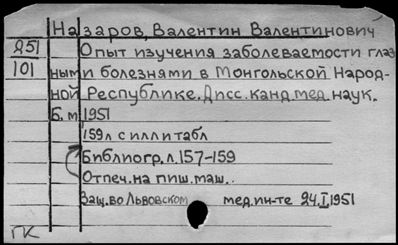 Назаров, Валентин Валентинович
251
101
Опыт изучения заболеваемости глаз
ными болезнями в Монгольской Народ-
ной Республике. Дисс. канд. мед. наук.
Б. м 1951
159 л с илл и табл
Библиогр. л. 157-159
Отпеч. на пиш. маш..
Защ. во Львовском мед. ин-те 24.I 1951
ГК